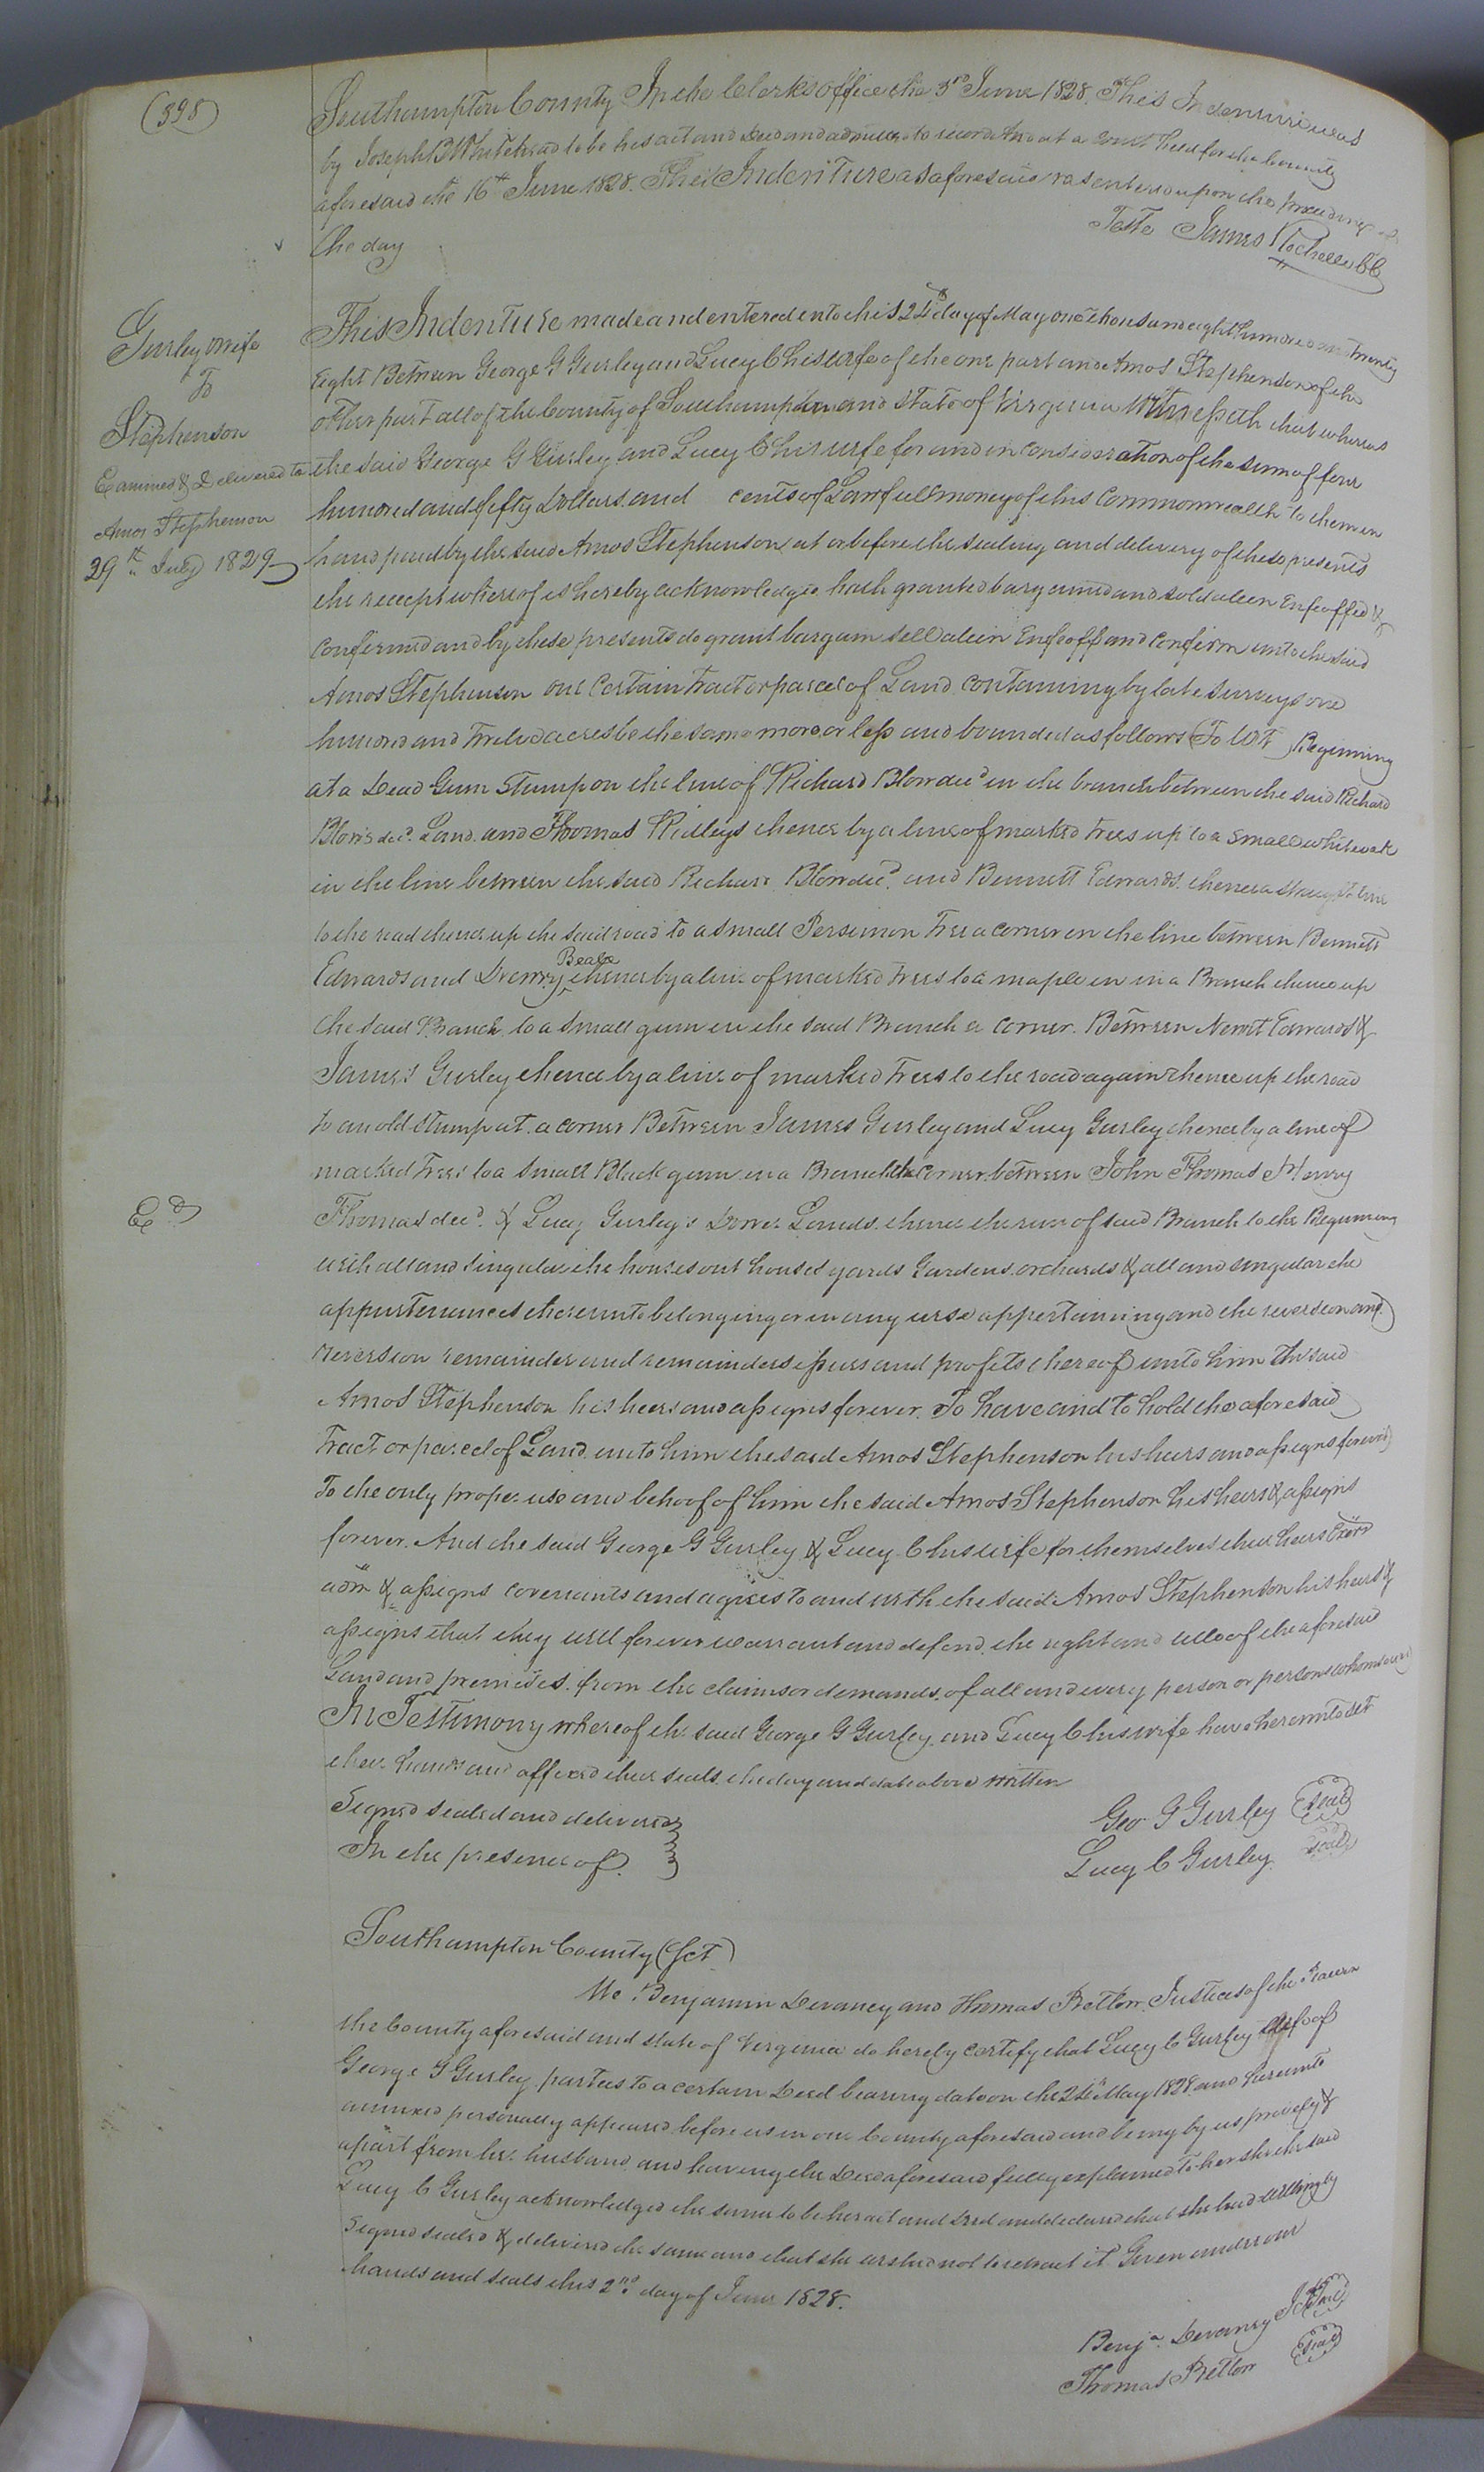 (398)
Southampton County In the Clerks office the 3rd June 1828. This Indenture was
by Joseph B Whitehead to be his act and Deed and admitted to record And at a Court held for the County
aforesaid the 16th June 1828. This Indenture as aforesaid was entered upon the proceedings of
the day
Teste James Rochelle CC
Gurley & wife
To
Stephenson
Examined & Delivered to
Amos Stephenson
29th July 1829
This Indenture made and entered into this 24th day of May one thousand eight hundred and Twenty
Eight Between George G Gurley and Lucy C his wife of the one part and Amos Stephenson of the
other part all of the County of Southampton and State of Virginia Witnesseth that whereas
the said George G Gurley and Lucy C his wife for and in Consideration of the sum of four
hundred and fifty Dollars and cents of Lawfull money of this Commonwealth to them in
hand paid by the said Amos Stephenson at or before the sealing and delivery of these presents
the receipt whereof is hereby acknowledged hath granted bargained and sold alien Enfeoffed &
Confirmed and by these presents do grant bargain sell alein Enfeoff and Confirm unto the said
Amos Stephenson one Certain Tract or parcel of Land containing by late surveys one
hundred and Twelve acres be the same more or less and bounded as follows (To Wit) Beginning
at a Dead Gum Stump on the line of Richard Blow decd in the branch between the said Richard
Blows decd. Land and Thomas Ridleys thence by a line of marked Trees up to a small white oak
in the line between the said Richard Blow decd. and Bennett Edwards. thence a straight line
to the road thence up the said road to a small Persimon Tree a corner in the line between Bennett
Edwards and Drewry Beale thence by a line of marked Trees to a maple in in a Branch thence up
the said Branch to a small gum in the said Branch a corner. Between Newit Edwards &
James Gurley thence by a line of marked Trees to the road again thence up the road
to an old stump at a corner Between James Gurley and Lucy Gurley thence by a line of
marked Trees to a small Black gum in a Branch the corner between John Thomas Henry
Thomas decd. & Lucy Gurley's Dower Lands. thence the run of said Branch to the Beginning
with all and singular the houses out houses yards Gardens orchards & all and singular the
appurtenances thereunto belonging or in any wise appertaining and the reversion and
reversion remainder and remainders issues and profits thereof unto him the said
Amos Stephenson his heirs and assigns forever. To have and to hold the aforesaid
Tract or parcel of Land unto him the said Amos Stephenson his heirs and assigns forever
To the only proper use and behoof of him the said Amos Stephenson his heirs & assigns
forever. And the said George G Gurley & Lucy C his wife for themselves their heirs Exors
adm & assigns covenants and agrees to and with the said Amos Stephenson his heirs &
assigns that they will forever warrant and defend the right and title of the aforesaid
Land and premises from the claims or demands of all and every person or persons whomsoever
In Testimony whereof the said George G Gurley and Lucy C his wife have hereunto set
their hands and affixed their seals the day and date above written
Signed sealed and delivered
In the presence of
Geo G Gurley (seal)
Lucy C Gurley (seal)
Southampton County (Sct)
We Benjamin Devaney and Thomas Pretlow Justices of the Peace in
the County aforesaid and state of Virginia do hereby certify that Lucy C Gurley wife of
George G Gurley parties to a certain Deed bearing date on the 24th May 1828 and hereunto
annexed personally appeared before us in our County aforesaid and being by us privily &
apart from her husband and having the Deed aforesaid fully explained to her she the said
Lucy C Gurley acknowledged the same to be her act and Deed and declared that she had willingly
signed sealed & delivered the same and that she wished not to retract it Given under our
hands and seals this 2nd day of June 1828.
Benja. Devaney JP (seal)
Thomas Pretlow (seal)